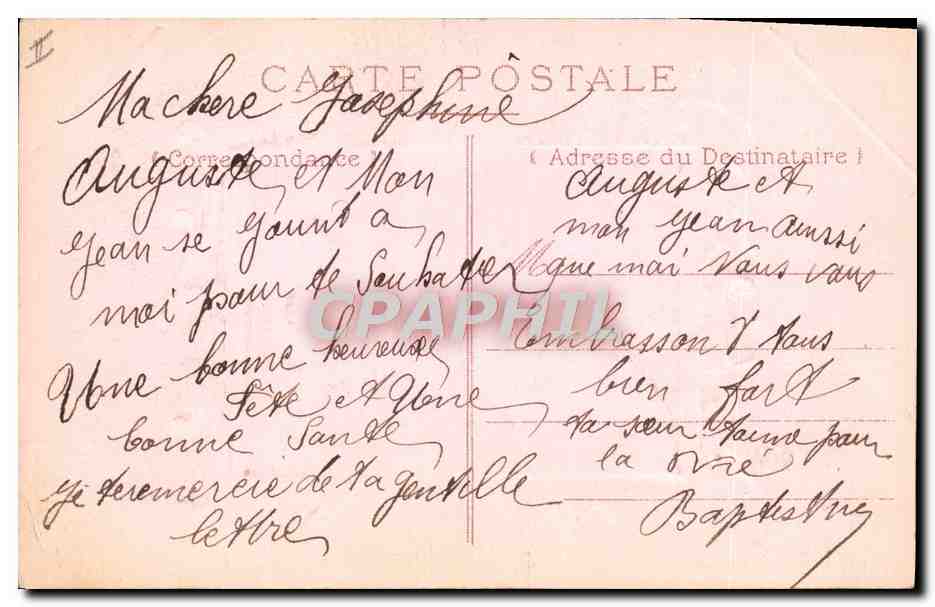 CARTE POSTALE
Machere Josephine
( Correspondance )
Auguste, et Mon
Jean se Jount a
moi pour te Souhater
Une bonne heureuse
Fête et Une
bonne Sante
Je teremercie de ta gentille
lettre
( Adresse du Destinataire )
Auguste et
mon Jean aussi
que moi Nous vous
Embrasson tous
bien fort
ta sœur pour
la
Baptistine
CPAPHIL